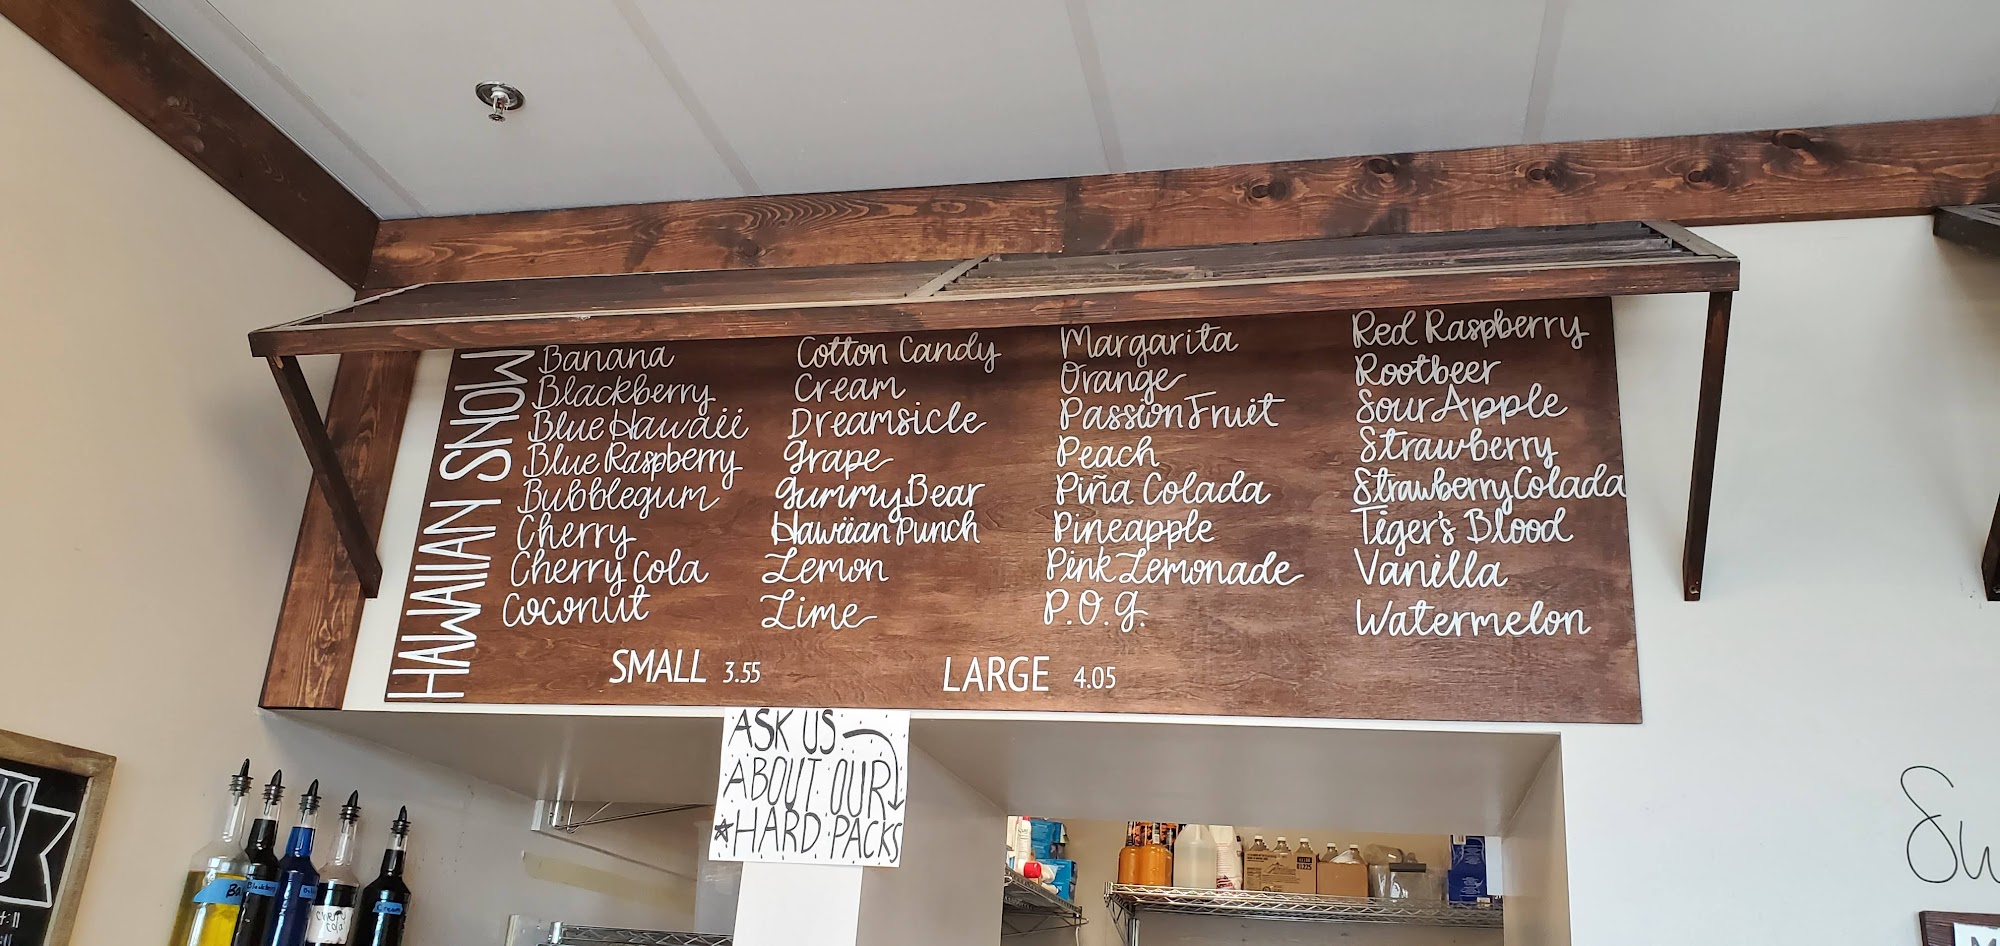 HAWAIIAN SNOW
Banana
Blackberry
Blue Hawaii
Blue Raspberry
Bubblegum
Cherry
Cherry Cola
Coconut
Cotton Candy
Cream
Dreamsicle
Grape
Gummy Bear
Hawiian Punch
Lemon
Lime
Margarita
Orange
Passion Fruit
Peach
Piña Colada
Pineapple
Pink Lemonade
P.O.G.
Red Raspberry
Rootbeer
Sour Apple
Strawberry
Strawberry Colada
Tiger's Blood
Vanilla
Watermelon
SMALL 3.55
LARGE 4.05
ASK US
ABOUT OUR
HARD PACKS
cherry
cola
Cream